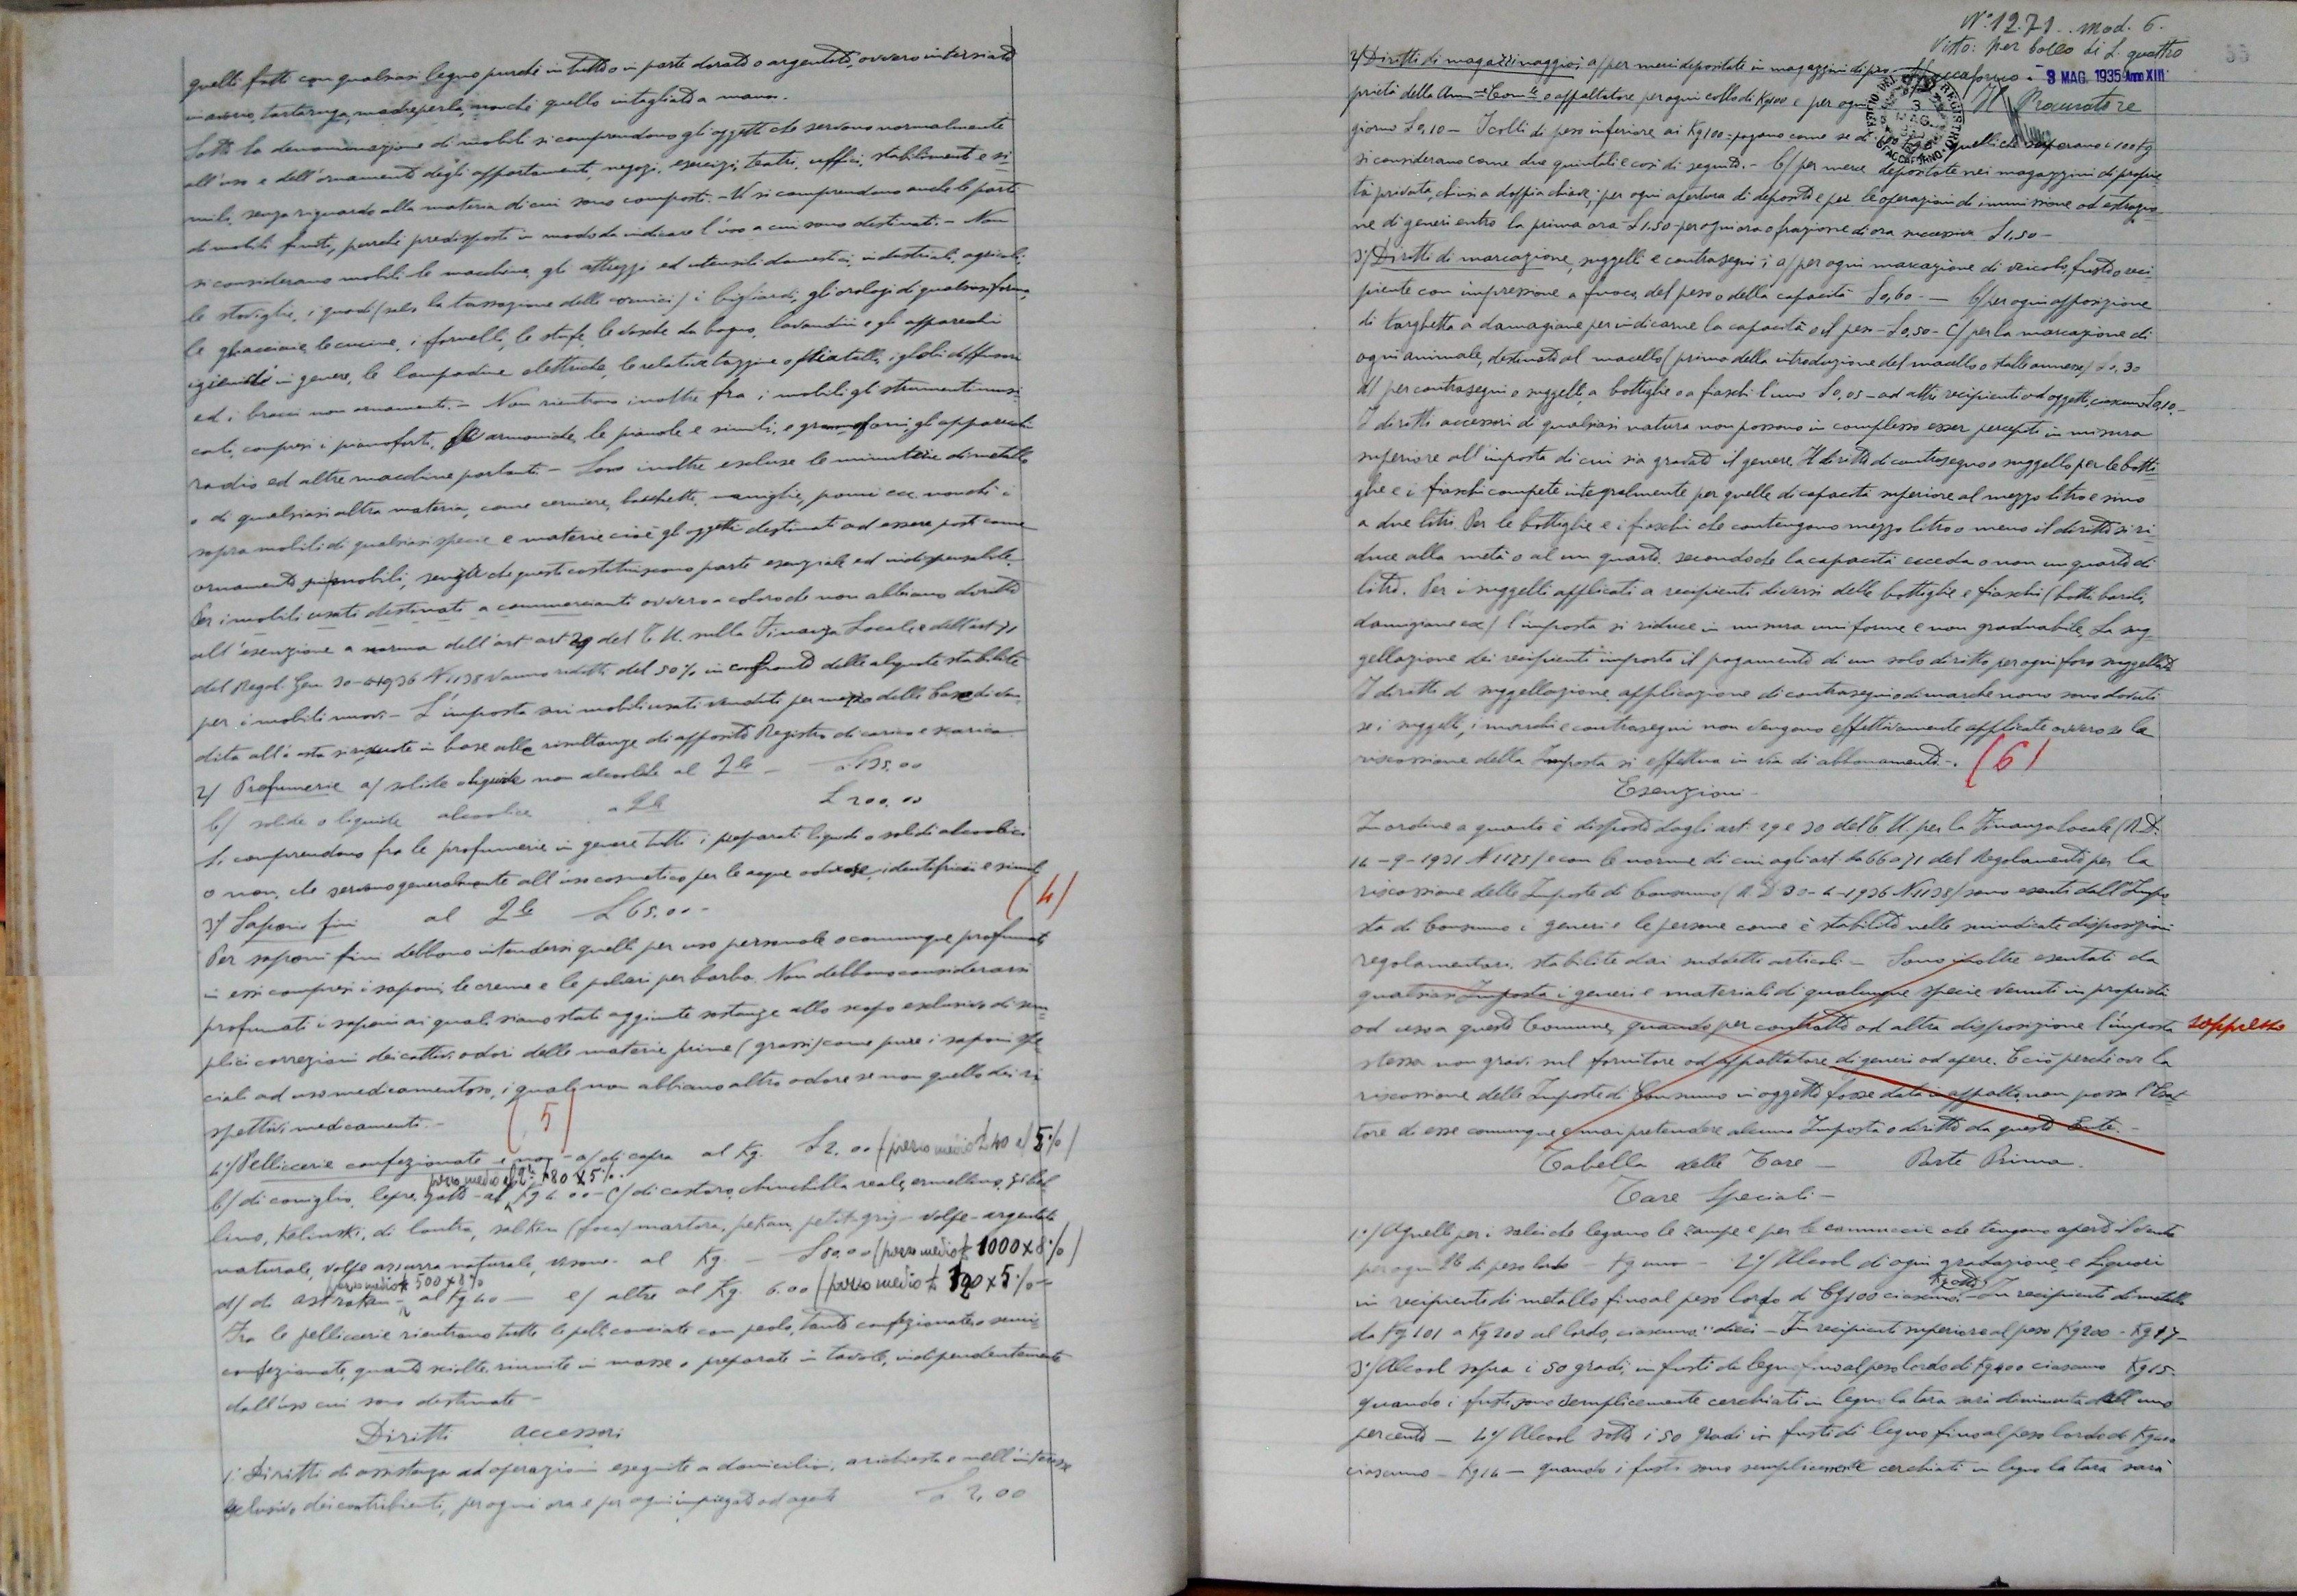 quelli fatti con qualsiasi legno purchè in tutto o in parte dorato o argentato, ovvero intersiato
in avorio, tartaruga, madreperla, nonchè quello intagliato a mano.
Sotto la denominazione di mobili si comprendono gli oggetti che servono normalmente
all'uso e dell'ornamento degli appartamenti, negozi, esercizi, teatri, uffici, stabilimenti e si
mili, senza riguardo alla materia di cui sono composti. - Vi si comprendono anche le parti
di mobili finiti, purchè predisposti in modo da indicare l'uso a cui sono destinati. - Non
si considerano mobili le macchine, gli attrezzi ed utensili domestici, industriali, agricoli,
le stoviglie, i quadri (salvo la tassazione delle cornici) i bigliardi, gli orologi di qualsiasi forma,
le ghiacciaie, le cucine, i fornelli, le stufe, le vasche da bagno, lavandini e gli apparecchi
igienici in genere, le lampadine elettriche, le relative tazzine o piattelli, i globi diffusori
ed i bracci non ornamenti. - Non rientrano inoltre fra i mobili gli strumenti musi
cali, compresi i pianoforti, le armoniche, le pianole e simili, e grammofoni gli apparecchi
radio ed altre macchine parlanti - Sono inoltre escluse le minuterie di metallo
o di qualsiasi altra materia, come cerniere, bacchette, maniglie, pomi ecc. nonchè i
sopra mobili di qualsiasi specie e materie cioè gli oggetti destinati ad essere posti come
ornamento sui mobili, senza che questi costituiscano parte essenziale ed indispensabile.
Per i mobili usati destinati a commercianti ovvero a coloro che non abbiano diritto
all'esenzione a norma dell'art art 29 del T.U. sulla Finanza Locale e dell'art 71
del Regol. Gen 30-4-1936 N 1138 vanno ridotti del 50% in confronto delle aliquote stabilite
per i mobili nuovi - L'imposta sui mobili usati venduti per mezzo delle Case di ven
dita all'asta si riscuote in base alle risultanze di apposito Registro di carico e scarico.
2/ Profumerie a/ solide o liquide non alcooliche al Q.le - L 135.00
b/ solide o liquide alcooliche al Q.le L 200.00
Si comprendono fra le profumerie in genere tutti i preparati liquidi o solidi alcoolici
o non, che servono generalmente all'uso cosmetico per le acque odorose, i dentifrici e simili
(4)
3/ Saponi fini al Q.le L 65.00 -
Per saponi fini debbono intendersi quelli per uso personale o comunque profumati
in essi compresi i saponi, le creme e le polveri per barba. Non debbono considerarsi
profumati i saponi ai quali siano stati aggiunte sostanze allo scopo esclusivo di sem
plici correzioni dei cattivi odori delle materie prime (grassi) come pure i saponi spe
ciali ad uso medicamentoso, i quali non abbiano altro odore se non quello dei ri
spettivi medicamenti. -
(5)
4°/ Pelliccerie confezionate e non - a/ di capra al Kg. L 2.00 (prezzo medio L 40 al 5%)
prezzo medio 80 x 5%.
b/ di coniglio, lepre, gatto - al Kg 4.00 - c/ di castoro, chinchilla reale, ermellino, zibel
lino, Kolinski, di lontra, selken (foca) martora, pekan, petit-gris - volpe - argentata
naturale, volpe azzurra naturale, visone - al Kg. - L 80.00 (prezzo medio L 1000 x 8%)
prezzo medio L 500 x 8%
d/ di astrakan - al Kg 40 - e/ altre al Kg. 6.00 (prezzo medio L 120 x 5% -
Fra le pelliccerie rientrano tutte le pelli conciate con pelo, tanto confezionate o semi
confezionate, quanto sciolte, riunite in masse o preparate in tavole, indipendentemente
dall'uso cui sono destinate -
Diritti accessori
1° Diritti di assistenza ad operazioni eseguite a domicilio, a richiesta e nell'interesse
esclusivo dei contribuenti, per ogni ora e per ogni impiegato od agente L 2,00
N° 1271. mod. 6.
Visto: per bollo di L. quattro
3 MAG. 1935 Anno XIII
Il Procuratore
2/ Diritti di magazzinaggio: a/ per merci depositate in magazzini di pro-
prietà della Amm.ne Com.le o appaltatore per ogni collo di Kg 100 e per ogni
giorno L 0,10 - I colli di peso inferiore ai Kg 100 pagano come se di 100 Kg. quelli che superano i 100 Kg
si considerano come due quintali e così di seguito. - b/ per merce depositate nei magazzini di proprie
tà privata, chiusi a doppia chiave; per ogni apertura di deposito e per le operazioni di immissione od estrazio
ne di generi entro la prima ora L 1,50 - per ogni ora o frazione di ora successiva L 1,50 -
3°/ Diritti di marcazione, suggelli e contrasegni; a/ per ogni marcazione di veicolo, fusto o reci
piente con impressione a fuoco, del peso o della capacità L 0,60. - b/ per ogni apposizione
di targhetta a damagiane per indicarne la capacità o il peso - L 0,50 - c/ per la marcazione di
ogni animale, destinato al macello (prima della introduzione del macello o stalle annesse) L 0,30
d/ per contrasegni o suggelli, a bottiglie o a fiaschi l'uno L 0,05 - ad altri recipienti od oggetti, ciascuno L 0,10. -
I diritti accessori di qualsiasi natura non possono in complesso esser percepiti in misura
superiore all'imposta di cui sia gravato il genere. Il diritto di contrasegno o suggello per le botti
glie e i fiaschi compete integralmente per quelle di capacità superiore al mezzo litro e sino
a due litri. Per le bottiglie e i fiaschi che contengono mezzo litro o meno il diritto si ri
duce alla metà o al un quarto, secondo che la capacità ecceda o non un quarto di
litro. Per i suggelli applicati a recipienti diversi delle bottiglie e fiaschi (botti barili,
damigiane ecc) l'imposta si riduce in misura uniforme e non graduabile. La sug-
gellazione dei recipienti importa il pagamento di un solo diritto per ogni foro suggellato
I diritti di suggellazione, applicazione di contrasegni o di marche nono sono dovuti
se i suggelli, i marchi e contrasegni non vengono effettivamente applicate ovvero se la
riscossione della Imposta si effettua in via di abbonamento. -
(6)
Esenzioni -
In ordine a quanto è disposto dagli art. 29 e 30 del T.U. per la Finanza Locale (R.D.
14-9-1931 N 1175) e con le norme di cui agli art. da 66 a 71 del Regolamento per la
riscossione delle Imposte di Consumo (R.D 30-4-1936 N 1138) sono esenti dall'Impo
sta di Consumo i generi e le persone come è stabilito nelle suindicate disposizioni
regolamentari, stabilite dai suddetti articoli - Sono inoltre esentati da
qualsiasi Imposta i generi e materiali di qualunque specie venuti in proprietà
od uso a questo Comune, quando per contratto od altra disposizione l'imposta
soppresso
stessa non gravi sul fornitore od appaltatore di generi od opere. E ciò perchè ove la
riscossione delle Imposte di Consumo in oggetto fosse data in appalto, non possa l'Esat
tore di esse comunque e mai pretendere alcuna Imposta o diritto da questo Ente. -
Tabella delle Tare - Parte Prima.
Tare Speciali -
1°/ Agnelli per i salci che legano le zampe e per le cannuccie che tengono aperto il ventre
per ogni Q.le di peso lordo - Kg uno - 2°/ Alcool di ogni gradazione e liquori
Kg otto
in recipiente di metallo fino al peso lordo di Kg 100 ciascuno. - In recipiente di metallo
da Kg 101 a Kg 200 al lordo, ciascuno: dieci - In recipienti superiore al peso Kg 200 - Kg 17 -
3°/ Alcool sopra i 50 gradi, in fusti di legno fino al peso lordo di Kg 400 ciascuno Kg 15 -
quando i fusti sono semplicemente cerchiati in legno la tara sarà diminuita dell'uno
percento - 4°/ Alcool sotto i 50 gradi in fusti di legno fino al peso lordo di Kg 400
ciascuno - Kg 14 - quando i fusti sono semplicemente cerchiati in legno la tara sarà